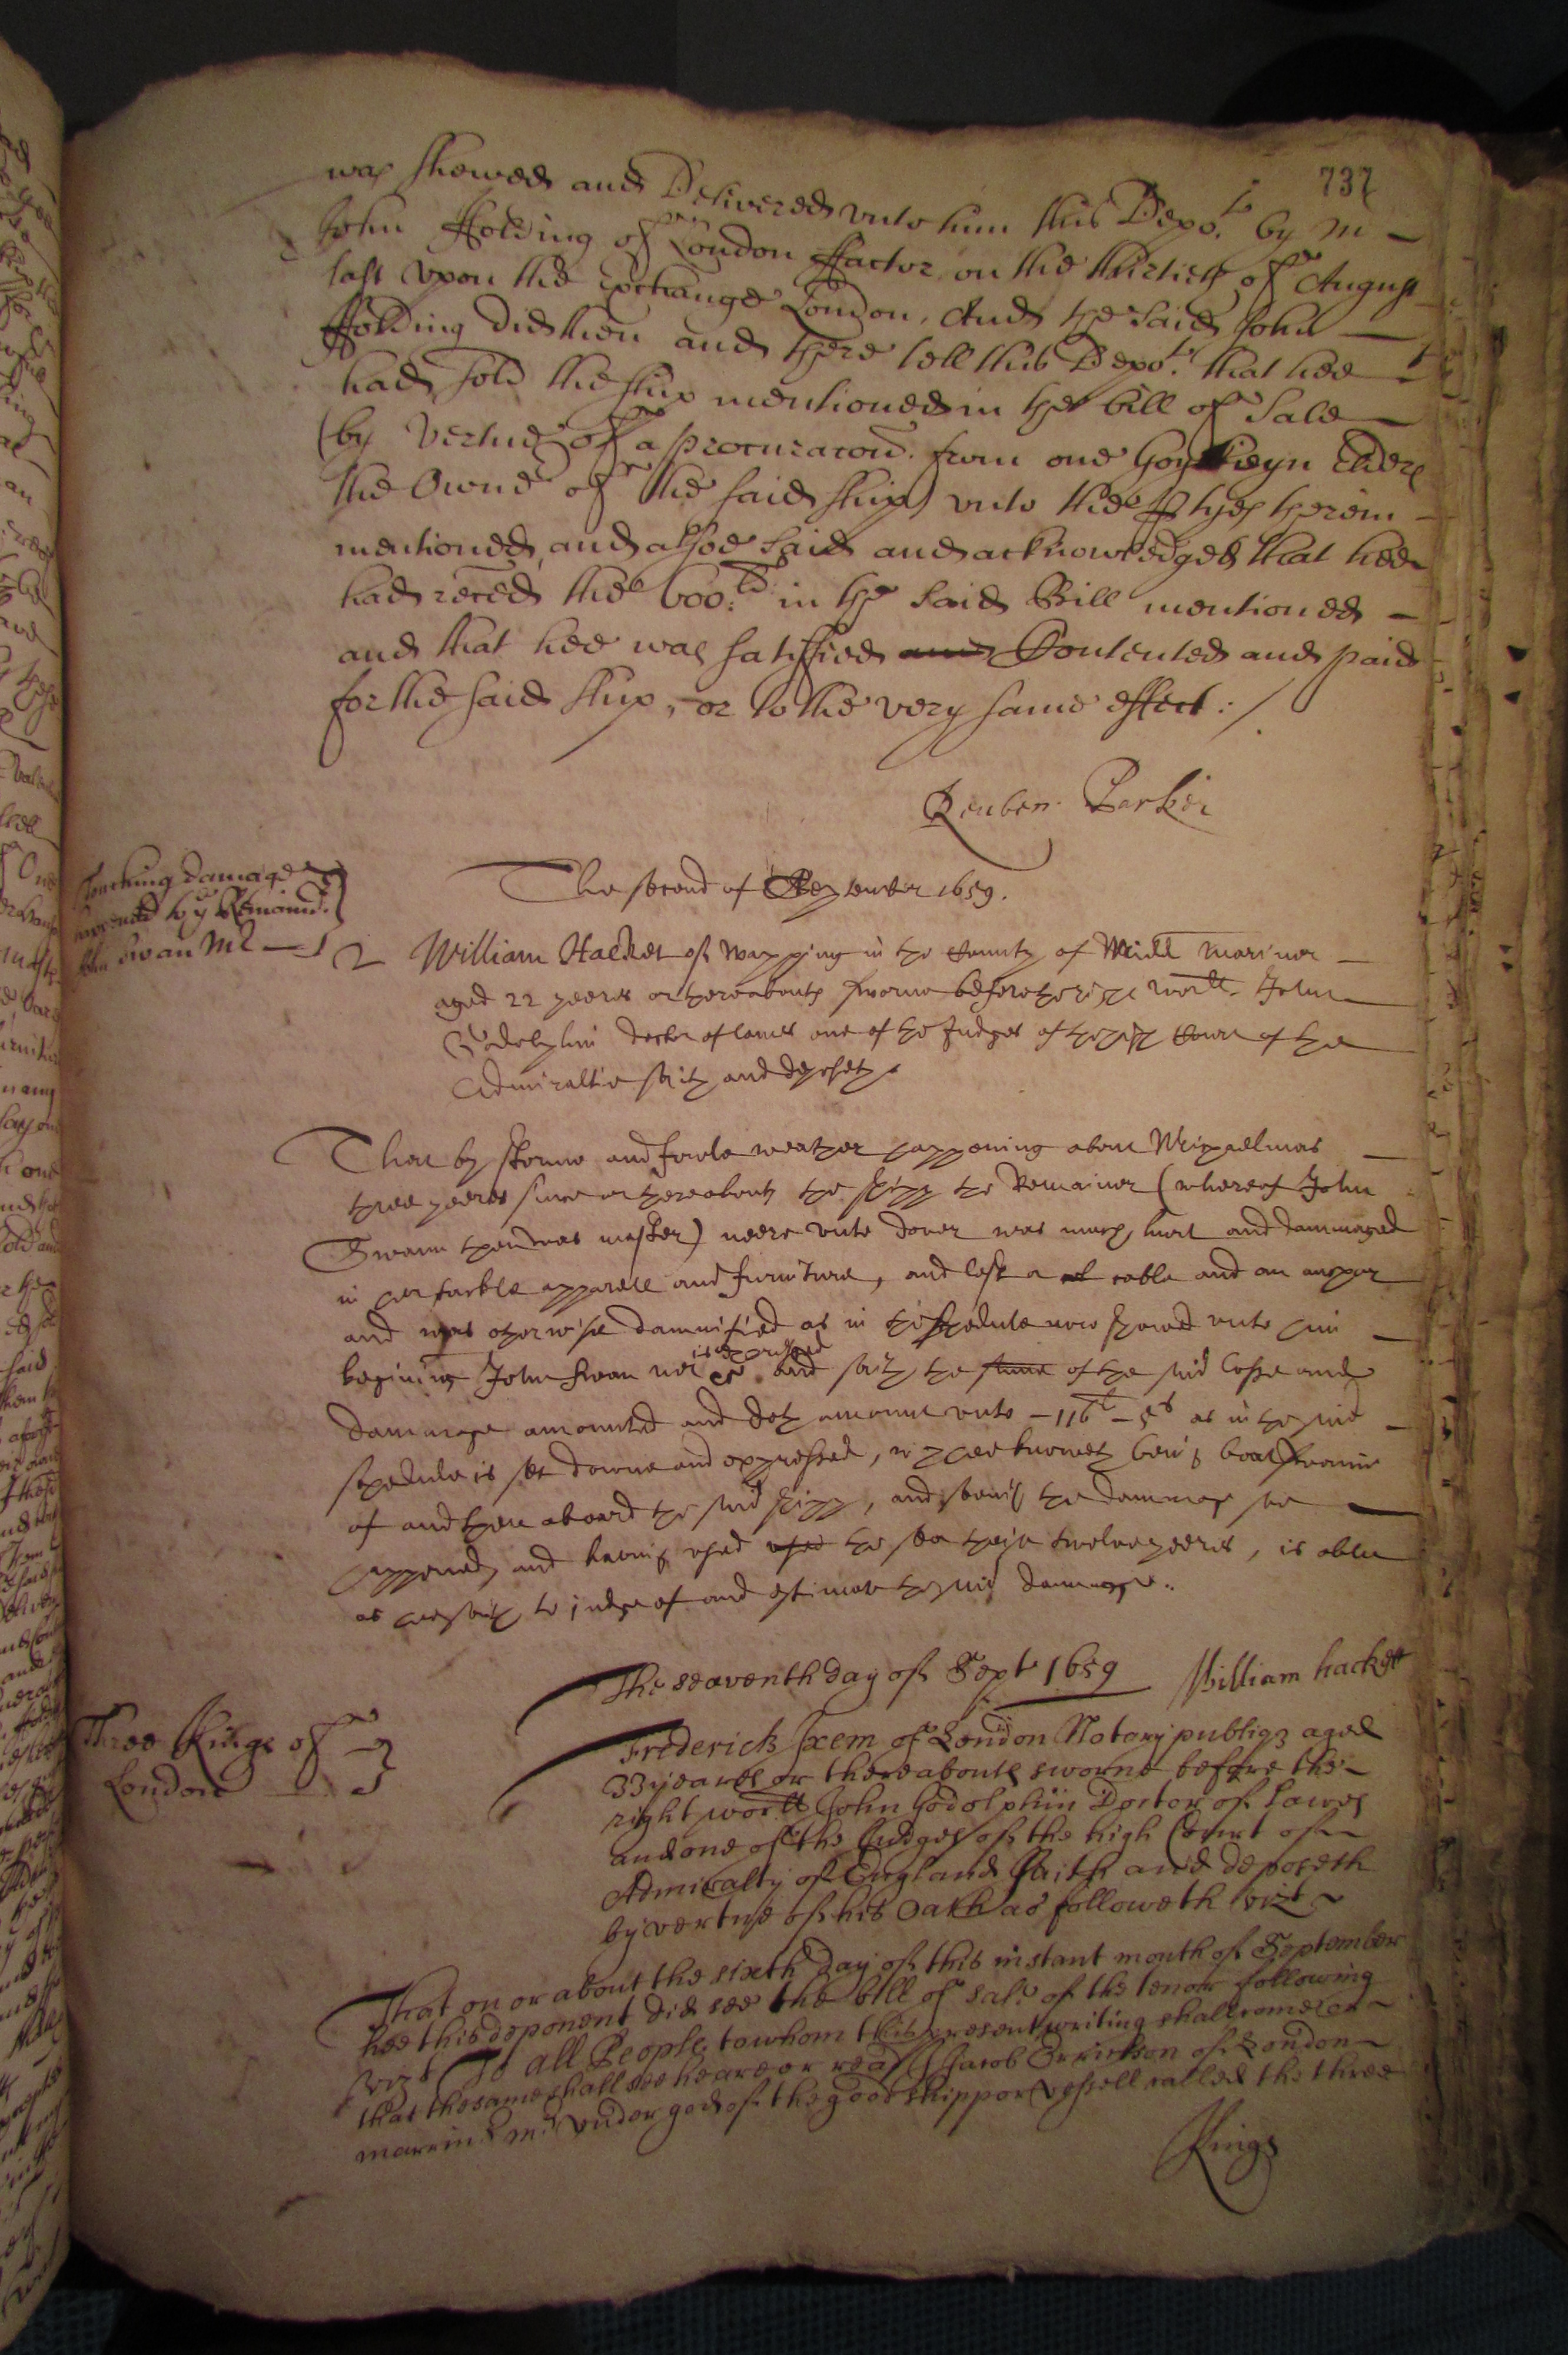 737
was shewed and Delivered unto him this Depo.t by Mr
John Holding of London ffactor on the thirtieth of August
last upon the exchange London, And the said John
Holding did then and there tell this Depo.t that hee
had sold the ship mentioned in the bill of Sale
(by vertue of a procuracon. from one
the Owner of the said ship) unto the therein
mentioned, and alsoe said and acknowledged that hee
had reced the 600:li in the said Bill mentioned
and that hee was satisfied and Contented and paid
for the said ship, or to the very same effect :/
Reuben Parker
The second of September 1659.
touching damage
to ye Remainer.
John Swan Mr
2 William Hacket of Wapping in the County of Midd Mariner
aged 22 yeeres or thereabouts sworne before the right worll John
Godolphin doctor of lawes one of the Judges of the high Court of the
Admiraltie saith and deposeth
That by storme and fowle weather happening about Michaelmas
three yeeres since or thereabouts the shipp the Remainer (whereof John
Swann then was master) neere unto dover was much hurt and dammaged
in her tackle apparell and furniture, and lost a cable and an anchor
and was otherwise damnified as in the schedule now shewed unto him
is expressed
begining John Swan and saith the summe of the said losse and
dammage amounted and doth amount unto - 116li - 5s as in the said
schedule is set downe and expressed, wch hee knoweth being boatswaine
of and then aboard the said shipp, and seeing the dammage soe
happened, and having used used the sea theise twelve yeeres, is able
as hee saith to judge of and estimate the said dammage.
The seaventh day of Sept 1659
William hackett
Three Kings of
London
Frederick Ixem of London Notary publiq3 aged
33 yeares or thereabouts sworne before the
right worll John Godolphin Doctor of Lawes
and one of the Judges of the high Court of
Admiralty of England Saith and deposeth
by vertue of his Oath as followeth vizt
That on or about the sixth day of this instant month of September
hee this deponent did see the bill of sale of the tenor following
vizt To all People to whom this present writing shall come or
that the same shall see heare or read I Jacob Errickson of London
marrinr. mr. under god of the good shipp or vessell called the three
Kings